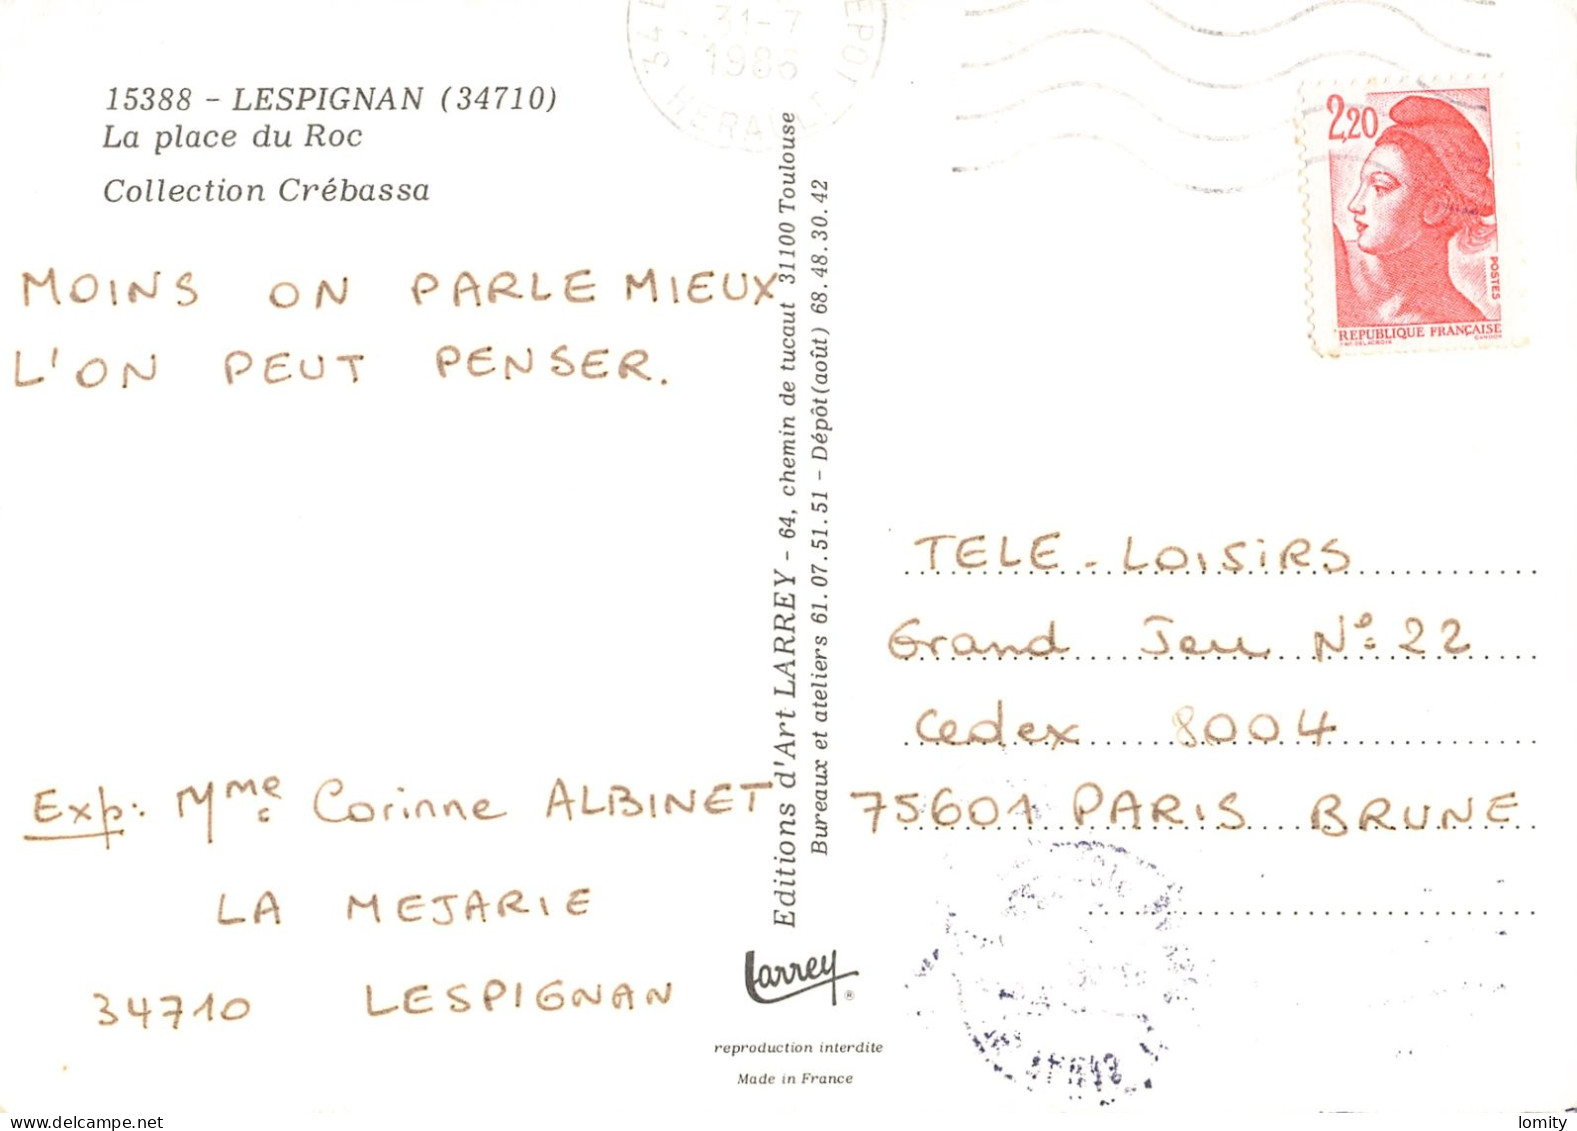 15388 - LESPIGNAN (34710)
La place du Roc
Collection Crébassa
MOINS ON PARLE MIEUX
L'ON PEUT PENSER.
Exp: Mme Corinne ALBINET
LA MEJARIE
34710 LESPIGNAN
31-7
1986
Editions d'Art LARREY - 64, chemin de tucaut 31100 Toulouse
Bureaux et ateliers 61.07.51.51 - Dépôt (août) 68.48.30.42
Larrey ®
reproduction interdite
Made in France
2,20
POSTES
REPUBLIQUE FRANÇAISE
TELE-LOISIRS
Grand Jeu N° 22
Cedex 8004
75601 PARIS BRUNE
delcampe.net
lomity